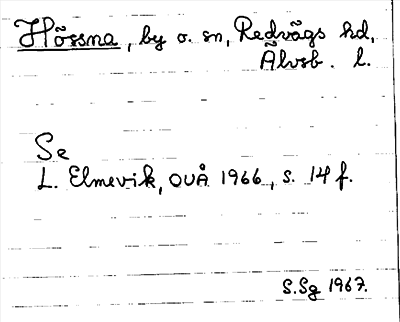 Hössna, by o. sn, Redvägs hd,
Älvsb. l.
Se
L. Elmevik, OUÅ 1966, s. 14 f.
S.Sg 1967.